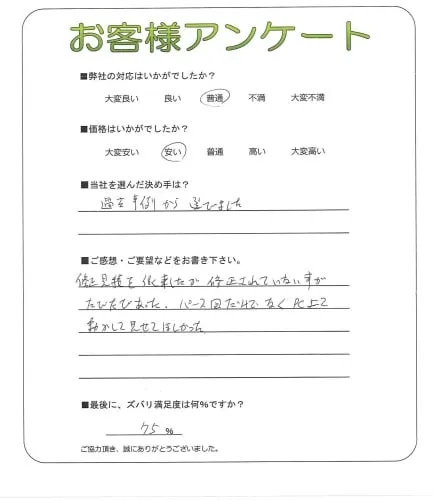 お客様アンケート
■弊社の対応はいかがでしたか？
大変良い 良い 普通 不満 大変不満
■価格はいかがでしたか？
大変安い 安い 普通 高い 大変高い
■当社を選んだ決め手は？
過去事例から選びました
■ご感想・ご要望などをお書き下さい。
修正見積を依頼したが修正されていない事が
たびたびあった。パース図だけでなくPC上で
動かして見せてほしかった
■最後に、ズバリ満足度は何％ですか？
75 ％
ご協力頂き、誠にありがとうございました。